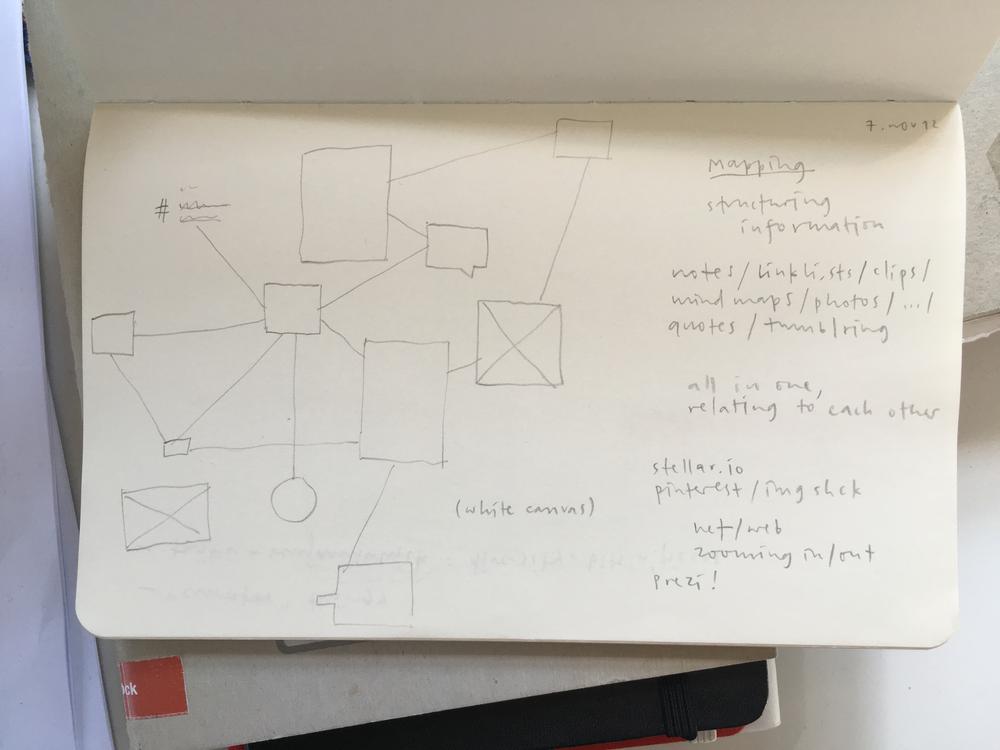 7. nov 12
mapping
structuring
information
notes / linklists / clips /
mind maps / photos / ... /
quotes / tumblring
all in one,
relating to each other
stellar.io
pinterest / img
net/web
zooming in/out
prezi!
(white canvas)
#
ck